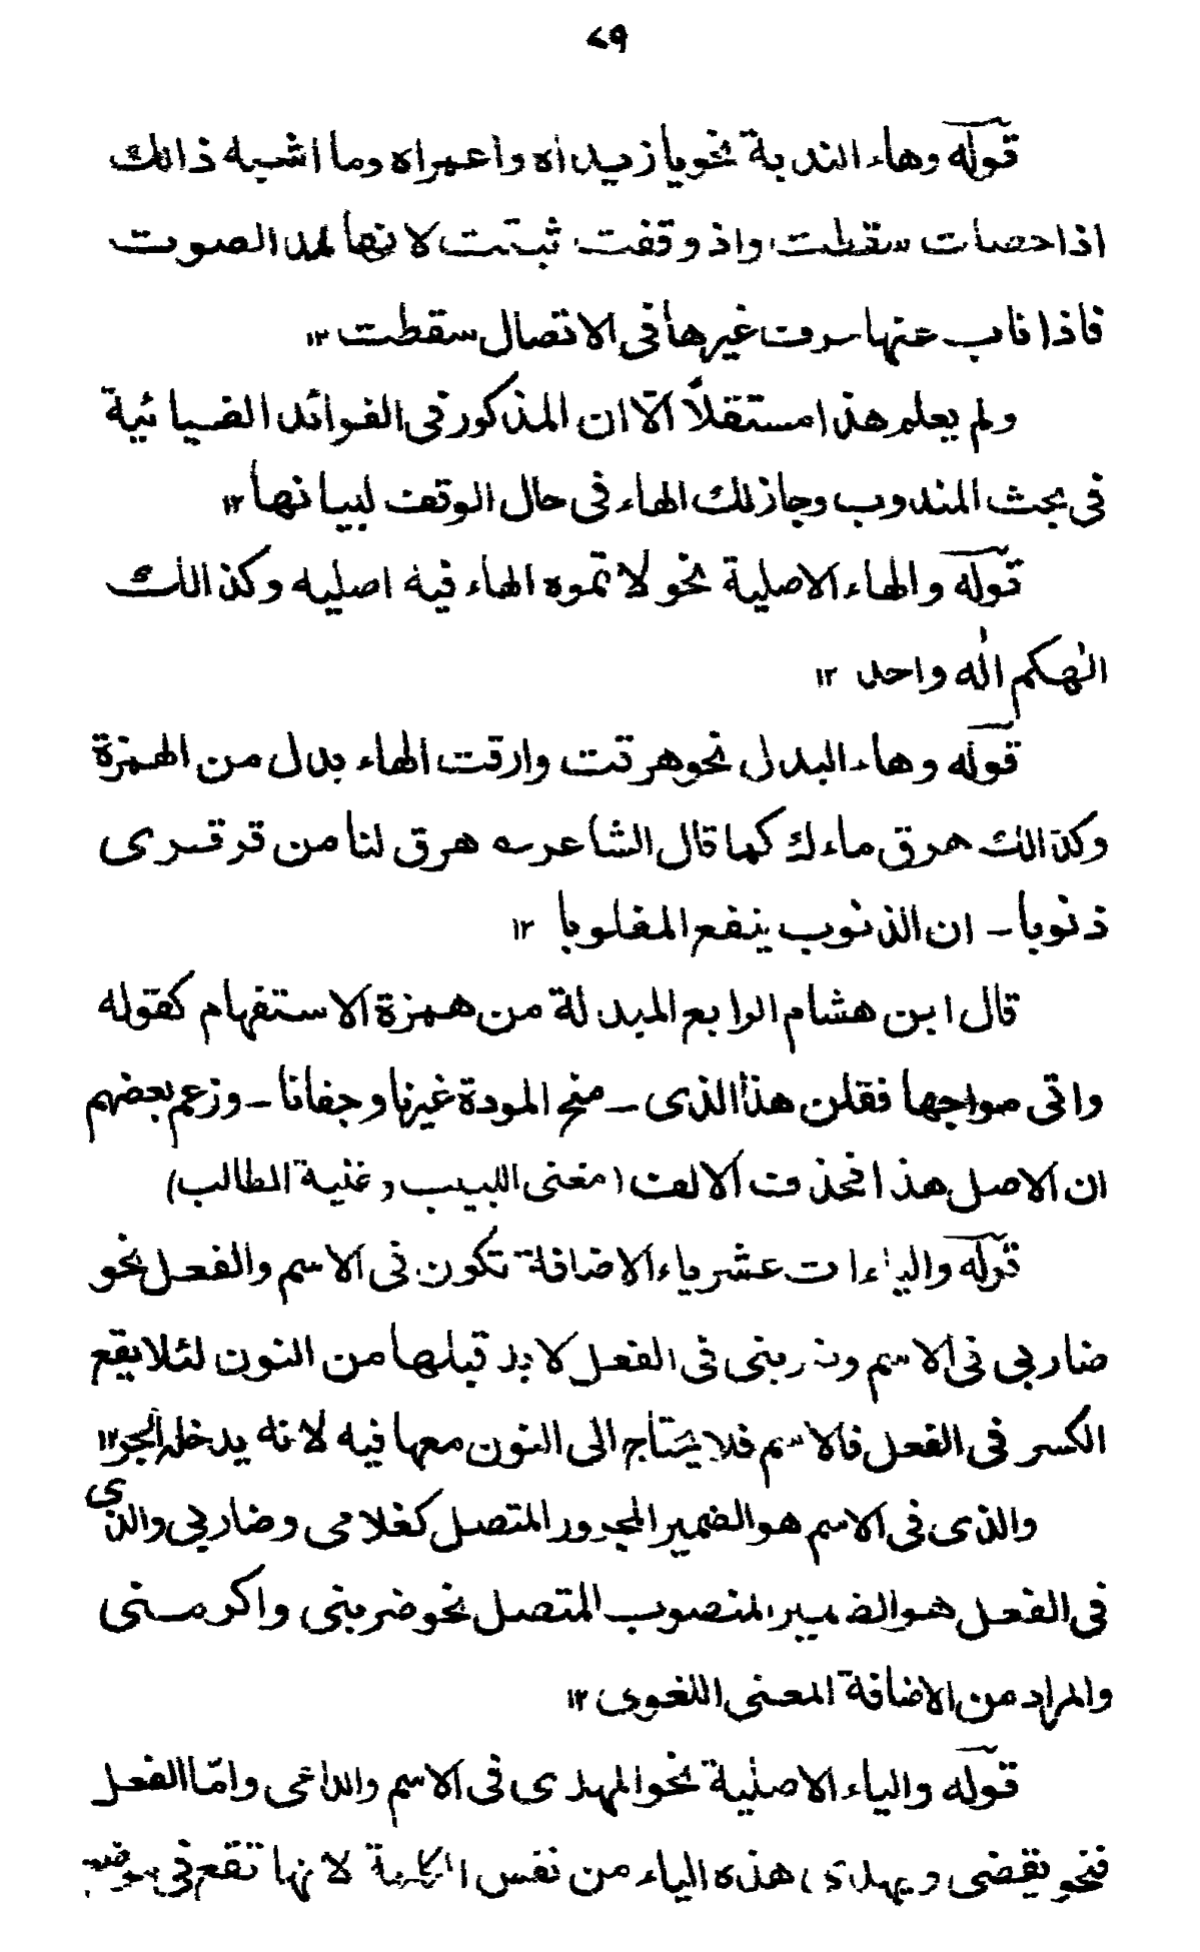 ٧٩
قوله وهاء الندبة نحو يا زيداه واعمراه وما اشبه ذالك
اذا حصلت سقطت واذ وقفت ثبتت لانها لمد الصوت
فاذا ناب عنها حرف غيرها فى الاتصال سقطت ١٢
ولم يعلم هذا مستقلاً الّا ان المذكور فى الفوائد الضيائية
فى بحث المندوب وجاز لك الهاء فى حال الوقف لبيانها ١٢
قوله والهاء الاصلية نحو لا تموه الهاء فيه اصليه وكذالك
الٰهكم الٰه واحد ١٢
قوله وهاء البدل نحو هرقت وارقت الهاء بدل من الهمزة
وكذالك هرق ماءك كما قال الشاعر ؎ هرق لنا من قرقرى
ذنوبا ـ ان الذنوب ينفع المغلوبا ١٢
قال ابن هشام الرابع المبدلة من همزة الاستفهام كقوله
واتى صواحبها فقلن هذا الذى ـ منح المودة غيرنا وجفانا ـ وزعم بعضهم
ان الاصل هذا فحذفت الالف (مغنى اللبيب وغنية الطالب)
قوله والياءات عشر ياء الاضافة تكون فى الاسم والفعل نحو
ضاربى فى الاسم وضربنى فى الفعل لابد قبلها من النون لئلا يقع
الكسر فى الفعل فالاسم فلا يحتاج الى النون معها فيه لانه يدخله الجر ١٢
والذى فى الاسم هو الضمير المجرور المتصل كغلامى وضاربى والذى
فى الفعل هو الضمير المنصوب المتصل نحو ضربنى واكرمنى
والمراد من الاضافة المعنى اللغوى ١٢
قوله والياء الاصلية نحو المهدى فى الاسم والداعى وامّا الفعل
فنحو يقضى ويهدى هذه الياء من نفس الكلمة لانها تقع فى موضع